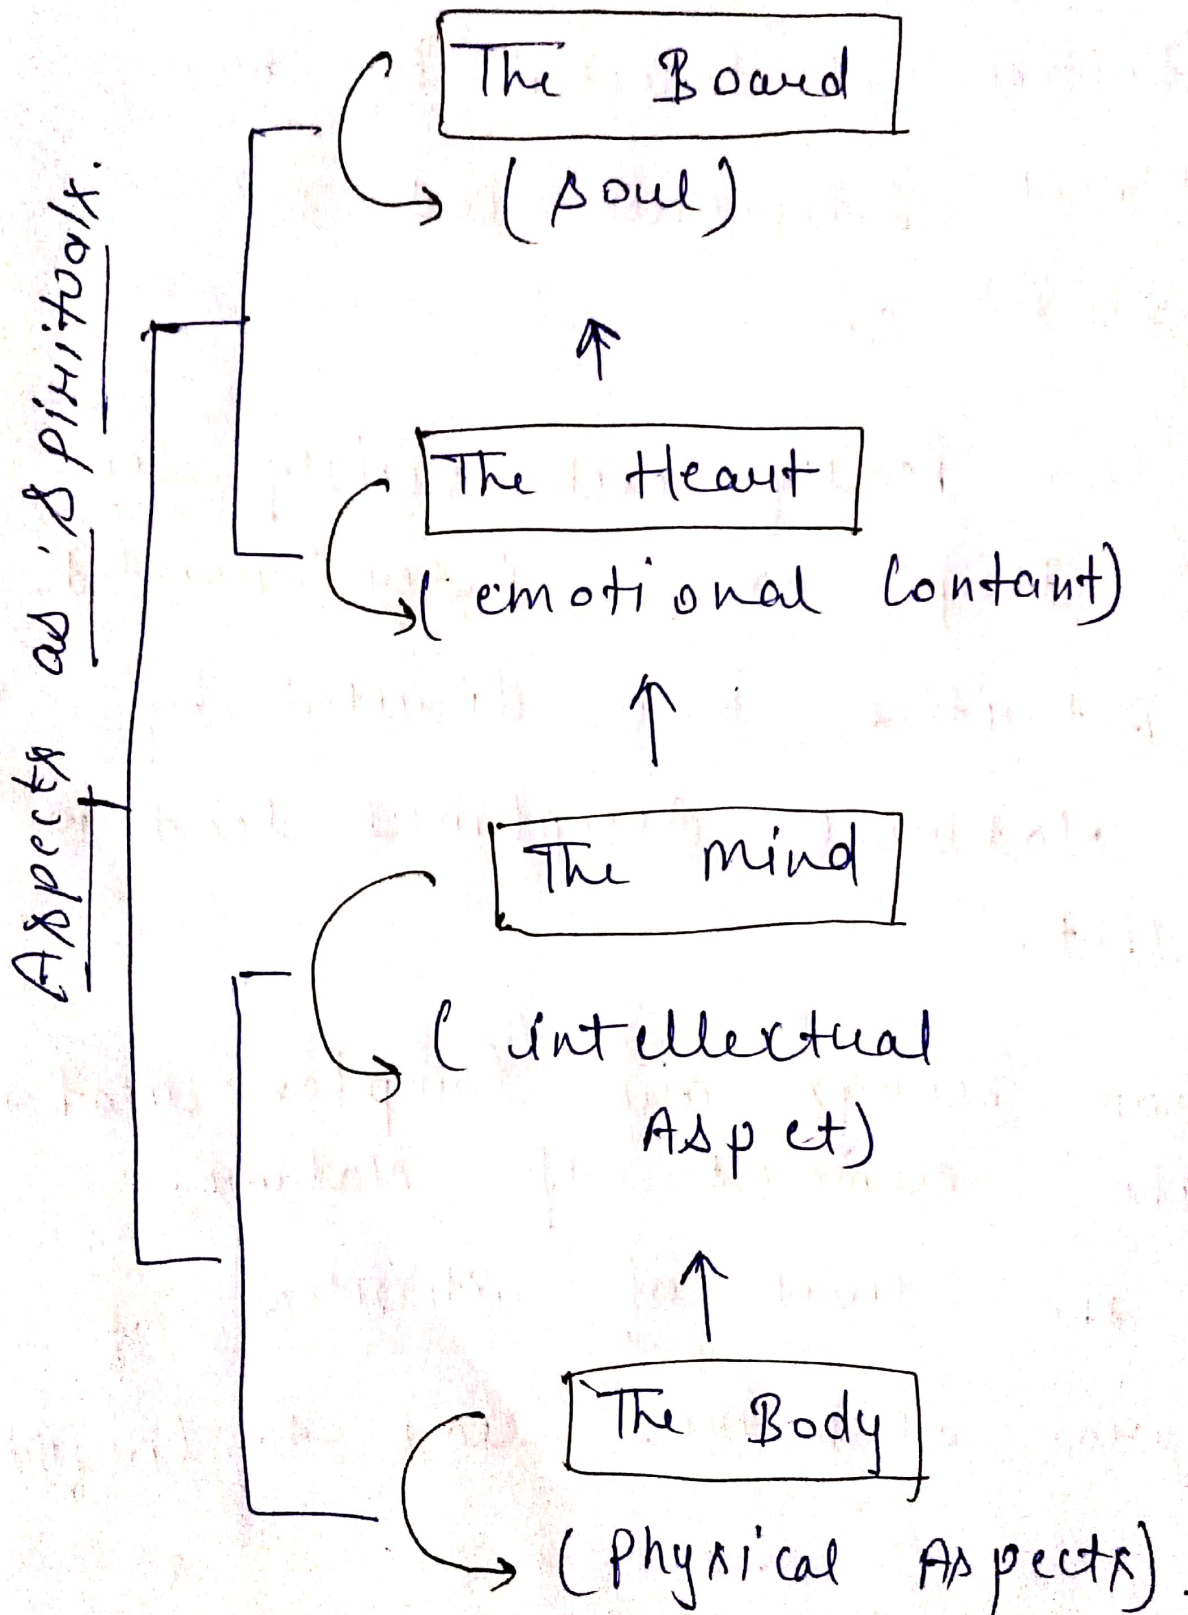 Aspects as Spirituals.
The Board
(soul)
The Heart
(emotional Contant)
The mind
(intellectual
Aspet)
The Body
(Physical Aspects).